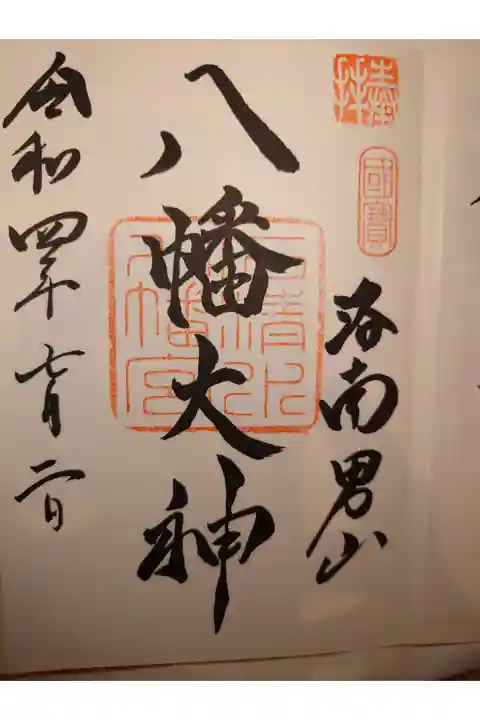 奉拝
國寶
洛南男山
八幡大神
石清水八幡宮
令和四年七月二日